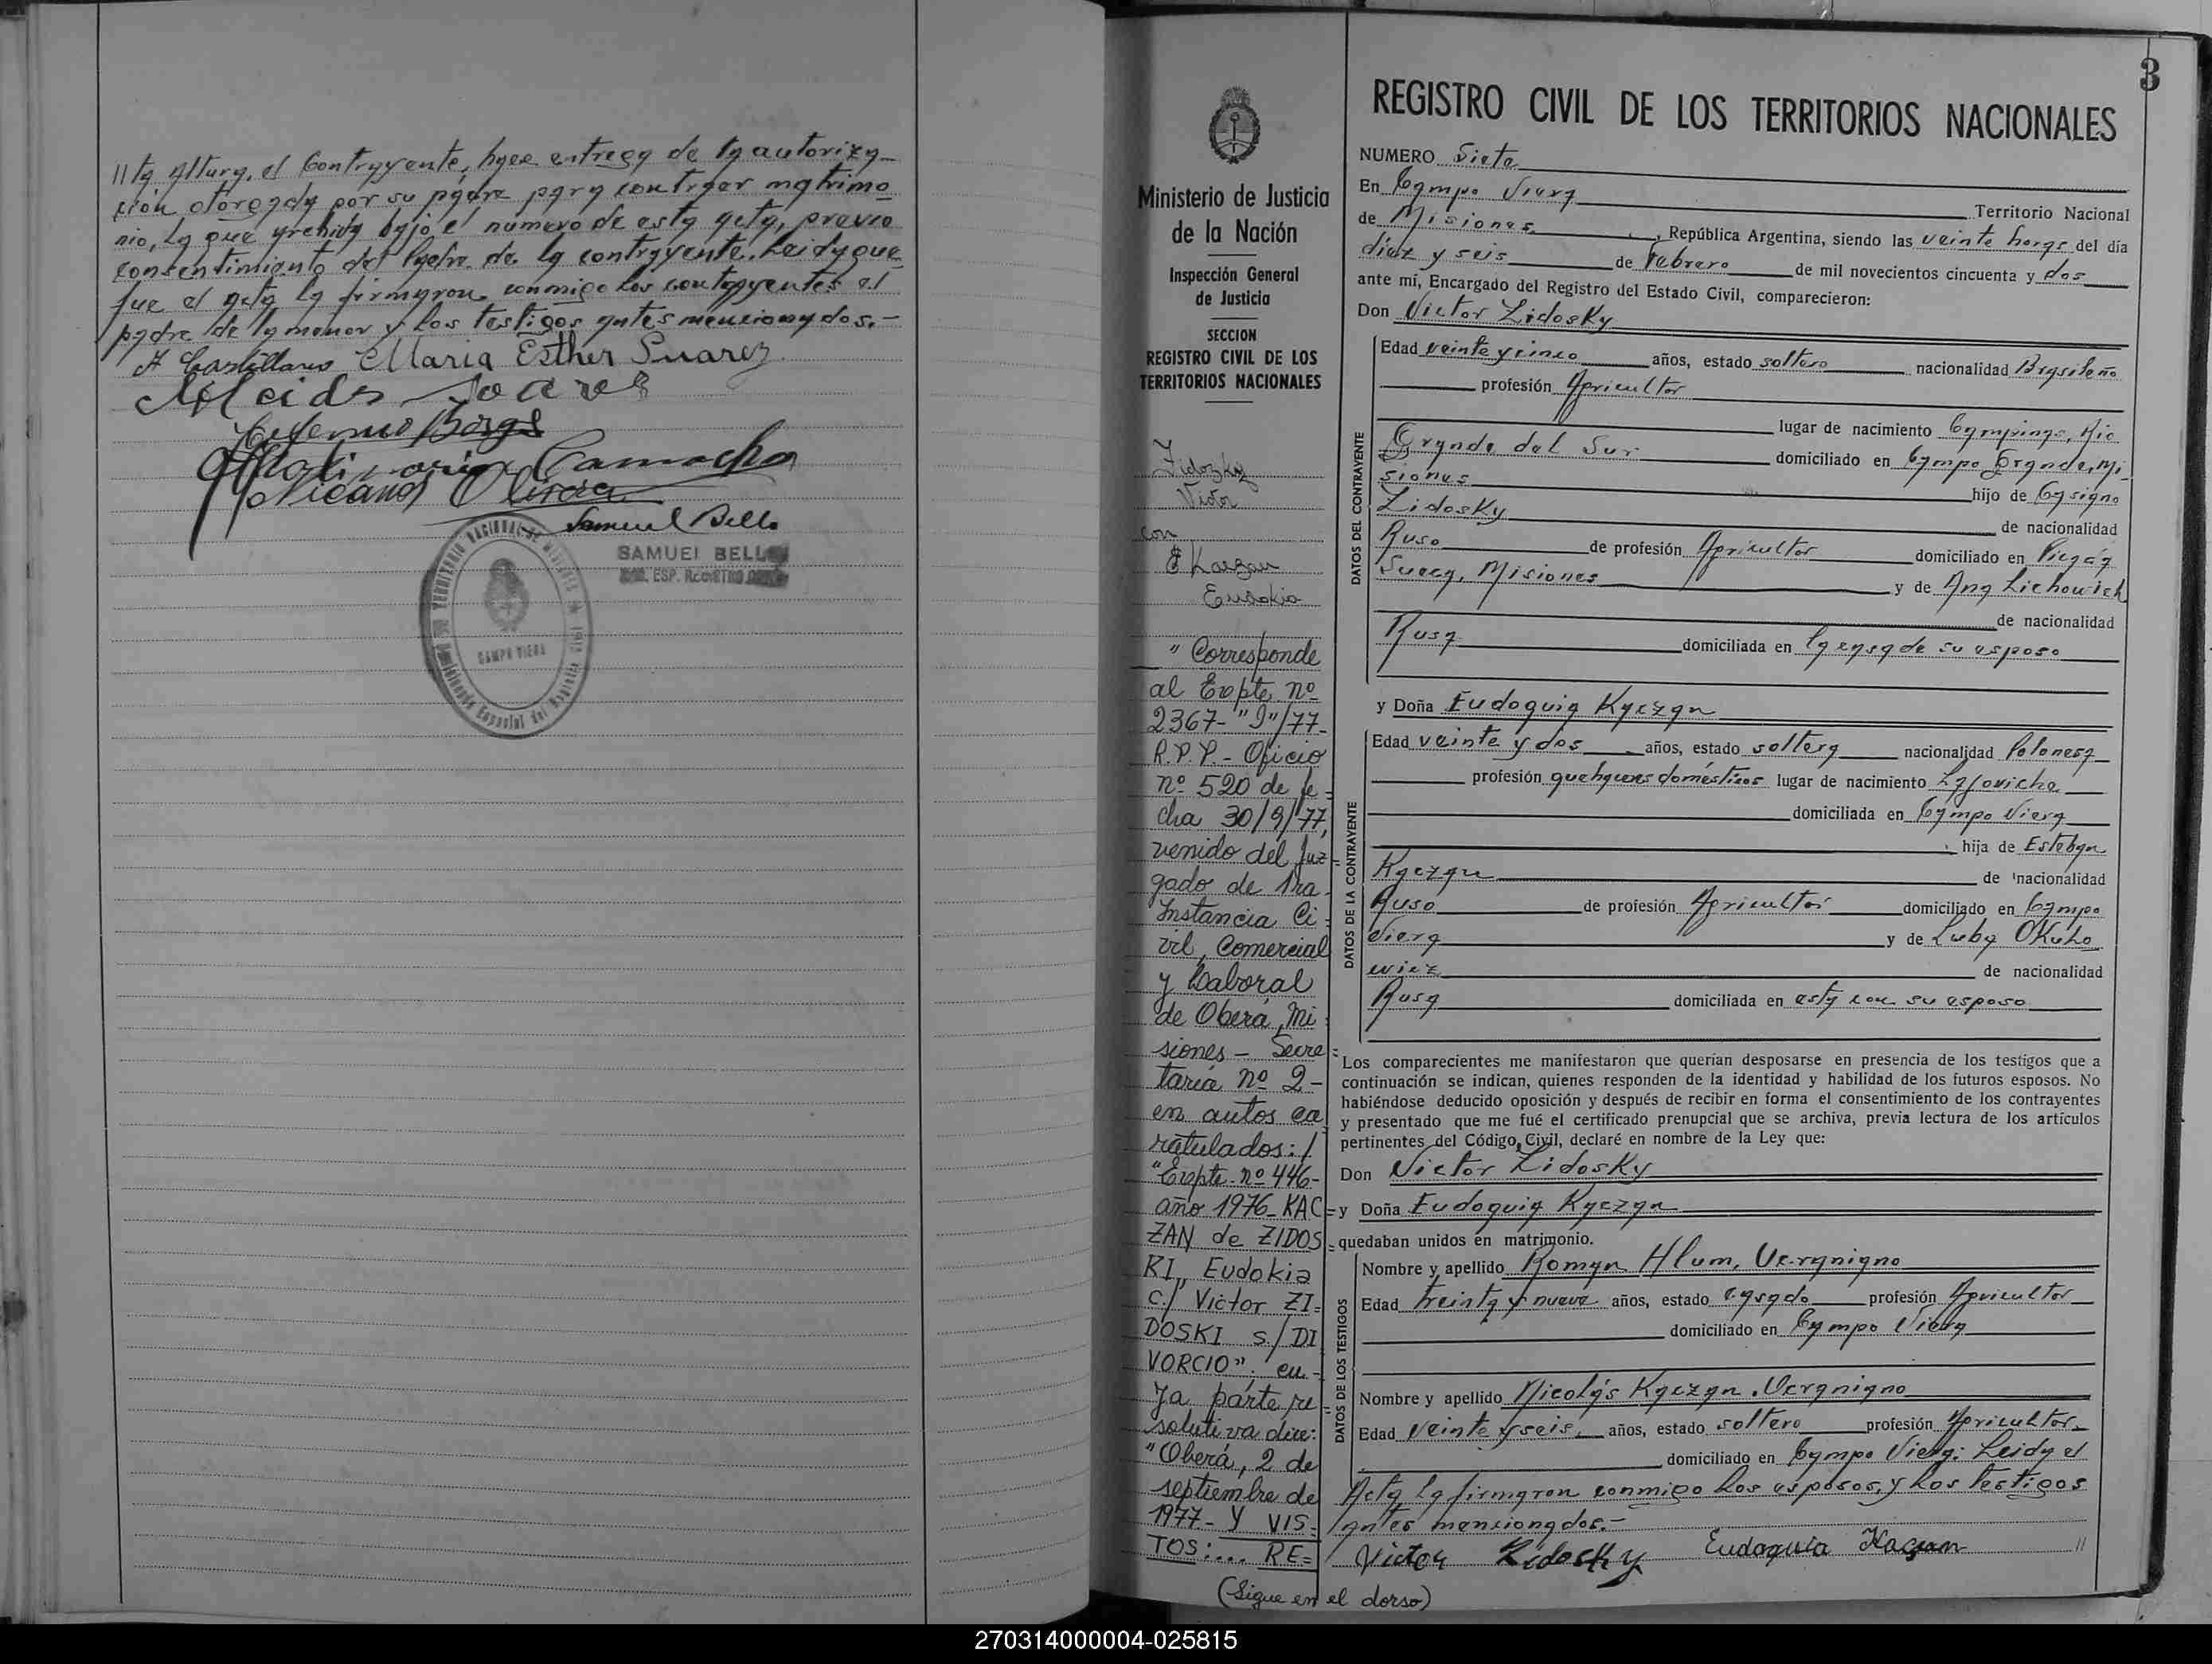 //ta altura, el Contrayente, hace entrega de la autoriza
cion otorgada por su padre para contraer matrimo
nio, la que archivo bajo el numero de esta acta, previo
consentimiento del padre de la contrayente. Leida que
fue el acta la firmaron conmigo los contrayentes el
padre de la menor y los testigos antes mencionados.-
Maria Esther Suarez
Samuel Bello
SAMUEL BELLO
CAMPO VIERA
3
REGISTRO CIVIL DE LOS TERRITORIOS NACIONALES
Ministerio de Justicia
de la Nación
Inspección General
de Justicia
SECCION
REGISTRO CIVIL DE LOS
TERRITORIOS NACIONALES
Zidozky
Victor
con
Kaczan
Eudokia
"Corresponde
al Expte. nº
2367-"I"/77-
R.P.P.- Oficio
nº 520 de fe=
cha 30/9/77,
venido del Juz=
gado de 1ra.
Instancia Ci=
vil, Comercial
y Laboral
de Oberá, Mi=
siones - Secre=
taría nº 2-
en autos ca
ratulados:/
"Expte. nº 446-
año 1976- KAC=
ZAN de ZIDOS=
KI, Eudokia
c./ Victor ZI=
DOSKI s./DI
VORCIO", cu-
ya parte re=
solutiva dice:
"Oberá, 2 de
septiembre de
1977- Y VIS=
TOS:... RE=
(Sigue en el dorso)
NUMERO Siete
En Campo Viera Territorio Nacional
de Misiones, República Argentina, siendo las veinte horas del día
diez y seis de Febrero de mil novecientos cincuenta y dos
ante mí, Encargado del Registro del Estado Civil, comparecieron:
Don Victor Zidosky
DATOS DEL CONTRAYENTE
Edad veinte y cinco años, estado soltero nacionalidad Brasileño
profesión Agricultor
lugar de nacimiento Campinas, Rio
Grande del Sur domiciliado en Campo Grande, Mi-
siones hijo de Casigno
Zidosky de nacionalidad
Ruso de profesión Agricultor domiciliado en Picada
Sueca, Misiones y de Ana Lichowich
de nacionalidad
Rusa domiciliada en la casa de su esposo
y Doña Eudoquia Kaczan
DATOS DE LA CONTRAYENTE
Edad veinte y dos años, estado soltera nacionalidad Polonesa
profesión quehaceres domésticos lugar de nacimiento
domiciliada en Campo Viera
hija de Esteban
Kaczan de nacionalidad
Ruso de profesión Agricultor domiciliado en Campo
Viera y de Luba Okuho
wicz de nacionalidad
Rusa domiciliada en esta con su esposo
Los comparecientes me manifestaron que querían desposarse en presencia de los testigos que a
continuación se indican, quienes responden de la identidad y habilidad de los futuros esposos. No
habiéndose deducido oposición y después de recibir en forma el consentimiento de los contrayentes
y presentado que me fué el certificado prenupcial que se archiva, previa lectura de los artículos
pertinentes del Código Civil, declaré en nombre de la Ley que:
Don Victor Zidosky
y Doña Eudoquia Kaczan
quedaban unidos en matrimonio.
DATOS DE LOS TESTIGOS
Nombre y apellido Roman Hlum, Ucraniano
Edad treinta y nueve años, estado casado profesión Agricultor
domiciliado en Campo Viera
Nombre y apellido Nicolás Kaczan, Ucraniano
Edad veinte y seis, años, estado soltero profesión Agricultor
domiciliado en Campo Viera: Leida el
Acta la firmaron conmigo los esposos, y los testigos
antes mencionados.-
Victor Zidosky Eudoquia Kaczan //
270314000004-025815